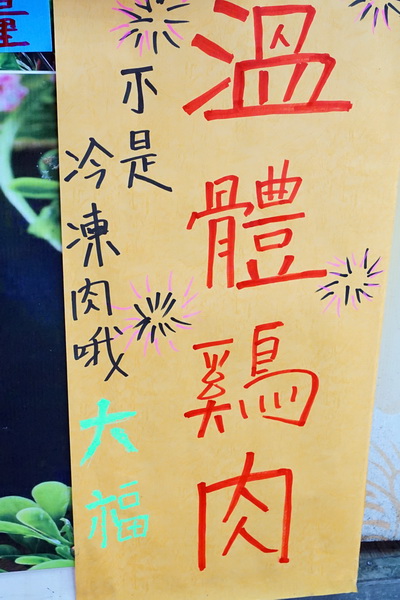 溫體鷄肉
不是
冷凍肉哦
大福
量